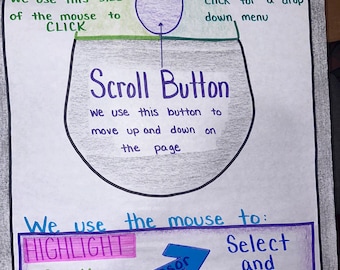 We use this side
of the mouse to
CLICK
Click for a drop
down menu
Scroll Button
We use this button to
move up and down on
the page
We use the mouse to:
HIGHLIGHT
Select
and